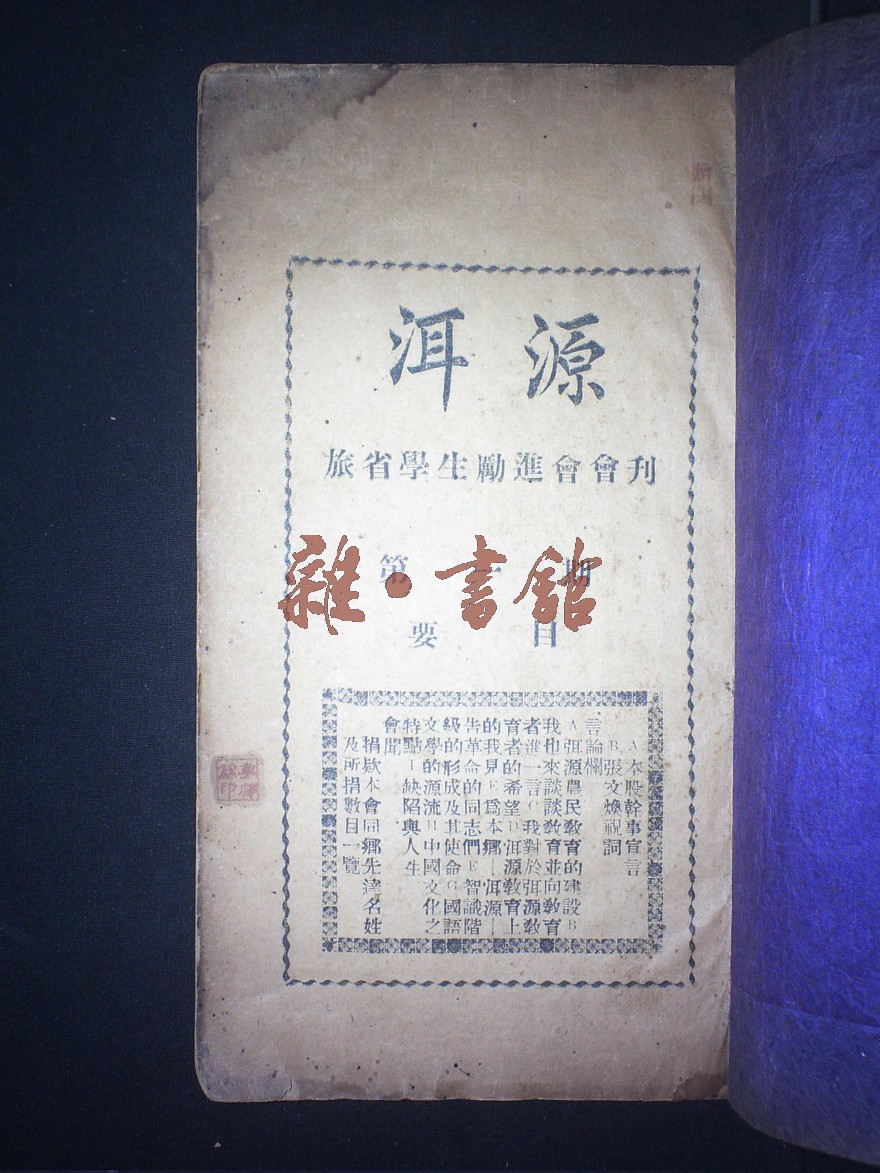 洱源
旅省學生勵進會會刊
第一期
雜·書館
要目
A本股幹事宣言
B張文煥祝詞
言論欄
A洱源農民教育的建設B
我也來談談教育並向教育
者進一言C我對於洱源教
育者的希望D洱源教育上
的我見E爲本鄉—洱源—
告革命的同志們F智識階
級的形成及其使命G國語
文學的源流H中國文化之
特點I缺陷與人生
會聞
捐欵本會同鄉先達名姓
及所捐數目一覽